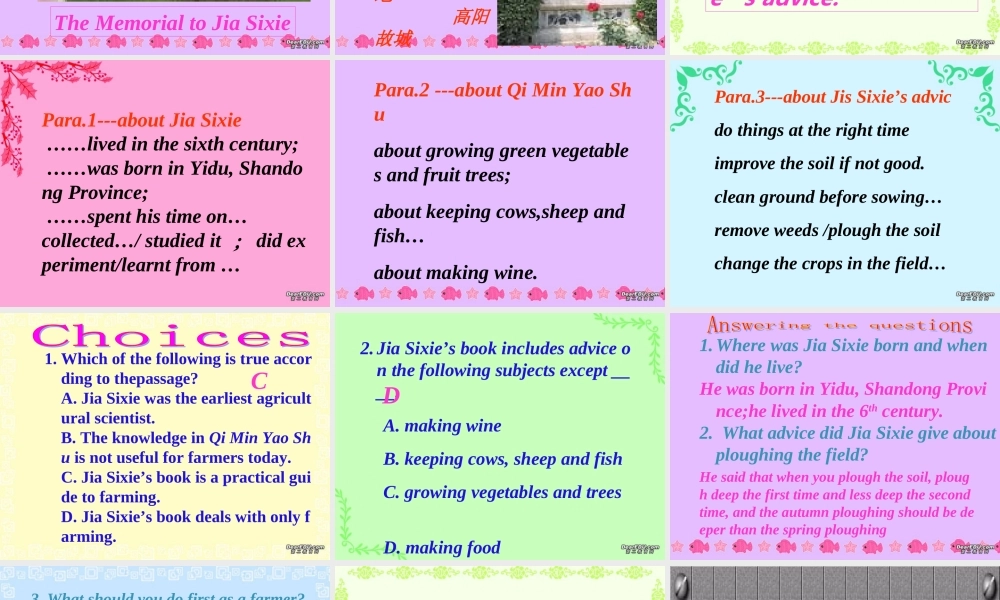 The Memorial to Jia Sixie
高阳
故城
e’s advice.
Para.1---about Jia Sixie
……lived in the sixth century;
……was born in Yidu, Shando
ng Province;
……spent his time on…
collected…/ studied it ； did ex
periment/learnt from …
Para.2 ---about Qi Min Yao Sh
u
about growing green vegetable
s and fruit trees;
about keeping cows,sheep and
fish…
about making wine.
Para.3---about Jis Sixie’s advic
do things at the right time
improve the soil if not good.
clean ground before sowing…
remove weeds /plough the soil
change the crops in the field…
Choices
1. Which of the following is true accor
ding to thepassage?
C
A. Jia Sixie was the earliest agricult
ural scientist.
B. The knowledge in Qi Min Yao Sh
u is not useful for farmers today.
C. Jia Sixie’s book is a practical gui
de to farming.
D. Jia Sixie’s book deals with only f
arming.
2. Jia Sixie’s book includes advice o
n the following subjects except __
__
D
A. making wine
B. keeping cows, sheep and fish
C. growing vegetables and trees
D. making food
Answering the questions
1. Where was Jia Sixie born and when
did he live?
He was born in Yidu, Shandong Provi
nce;he lived in the 6th century.
2. What advice did Jia Sixie give about
ploughing the field?
He said that when you plough the soil, ploug
h deep the first time and less deep the second
time, and the autumn ploughing should be de
eper than the spring ploughing
3. What should you do first as a farmer?